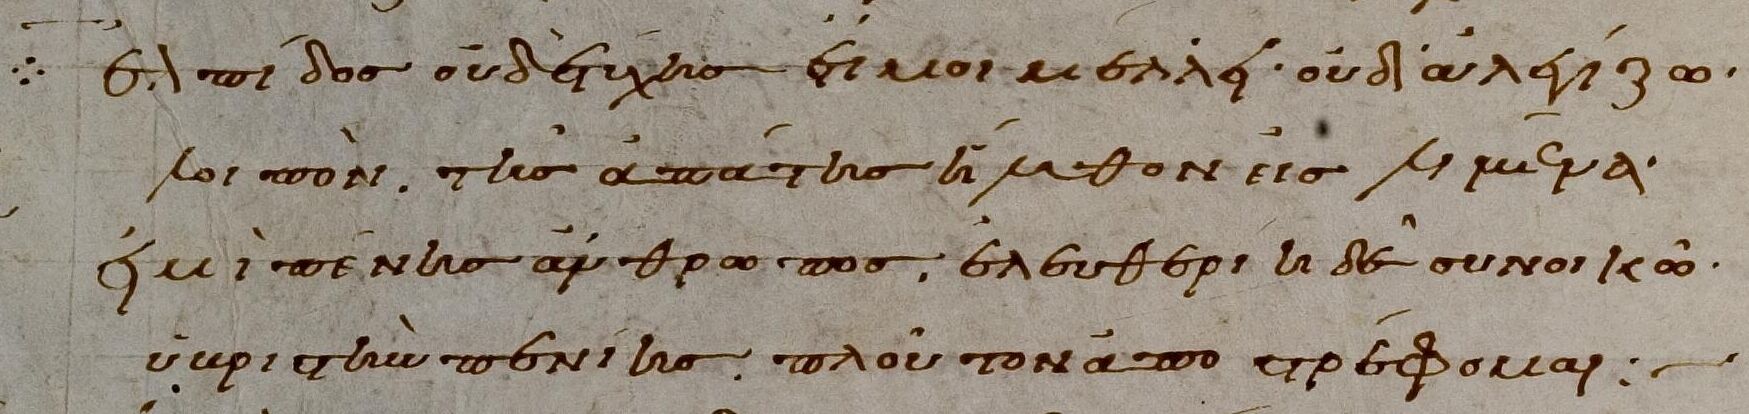 ἐλπίδος οὐδὲ τύχης ἔτι μοι μέλλει· οὐδ' ἀλεγίζω·
λοιπὸν. τῆς ἀπάτης ἤλυθον εἰς λιμένα·
εἰμὶ πένης ἄνθρωπος, ἐλευθερίη δὲ συνοικῶ·
ὑβριστὴν πενίης. πλοῦτον ἀποστρέφομαι: